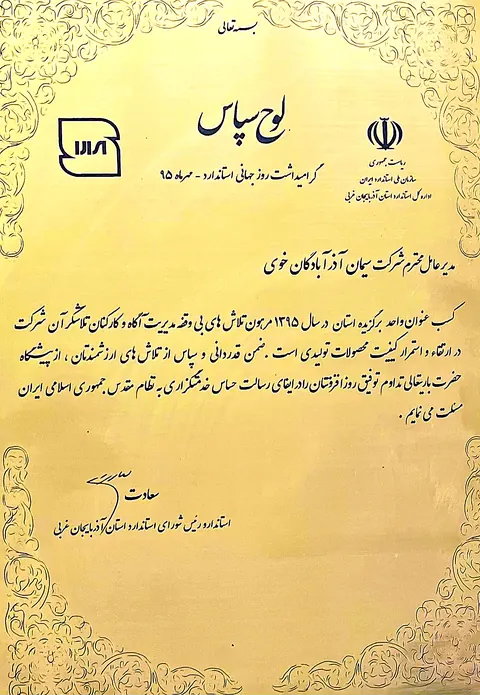 بسمه تعالی
لوح سپاس
گرامیداشت روز جهانی استاندارد - مهرماه ۹۵
ریاست جمهوری
سازمان ملی استاندارد ایران
اداره کل استاندارد استان آذربایجان غربی
مدیر عامل محترم شرکت سیمان آذرآبادگان خوی
کسب عنوان واحد برگزیده استان در سال ۱۳۹۵ مرهون تلاش های بی وقفه مدیریت آگاه و کارکنان تلاشگر آن شرکت
در ارتقاء و استمرار کیفیت محصولات تولیدی است. ضمن قدردانی و سپاس از تلاش های ارزشمندتان ، از پیشگاه
حضرت باریتعالی تداوم توفیق روزافزونتان را در ایفای رسالت حساس خدمتگزاری به نظام مقدس جمهوری اسلامی ایران
مسئلت می نمایم .
سعادت
استاندار و رئیس شورای استاندارد استان آذربایجان غربی